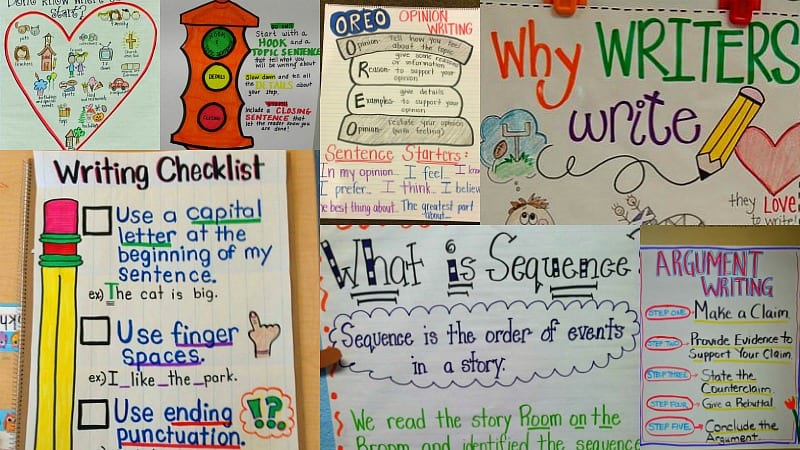 Start?
Family
GO
Start with a
HOOK and a
TOPIC SENTENCE
that tell what you
will be writing about
Slow down and tell all
the DETAILS about
your
include a CLOSING
SENTENCE that
let the reader know you
are done!
DETAILS
CLOSING
OREO OPINION
WRITING
Opinion- Tell how you feel
about the topic
Reason- give some reasons
or information
to support your
opinion
Examples- give details
to support your
opinion
Opinion- restate your opinion
(with feeling)
Sentence Starters:
In my opinion I feel_ I kno
I prefer_ I think_ I believ
he best thing about_ The greatest part
about_
Why WRITERS
write
they LOVE
to write!
Writing Checklist
Use a capital
letter at the
beginning of my
sentence.
ex) The cat is big.
Use finger
spaces.
ex) I_like_the_park.
Use ending
punctuation.
!?
What is Sequence?
Sequence is the order of events
in a story.
We read the story Room on the
Broom and identified the sequence
ARGUMENT
WRITING
STEP ONE Make a Claim
STEP TWO Provide Evidence to
Support Your Claim
STEP THREE State the
Counterclaim.
STEP FOUR Give a Rebuttal
STEP FIVE Conclude the
Argument.